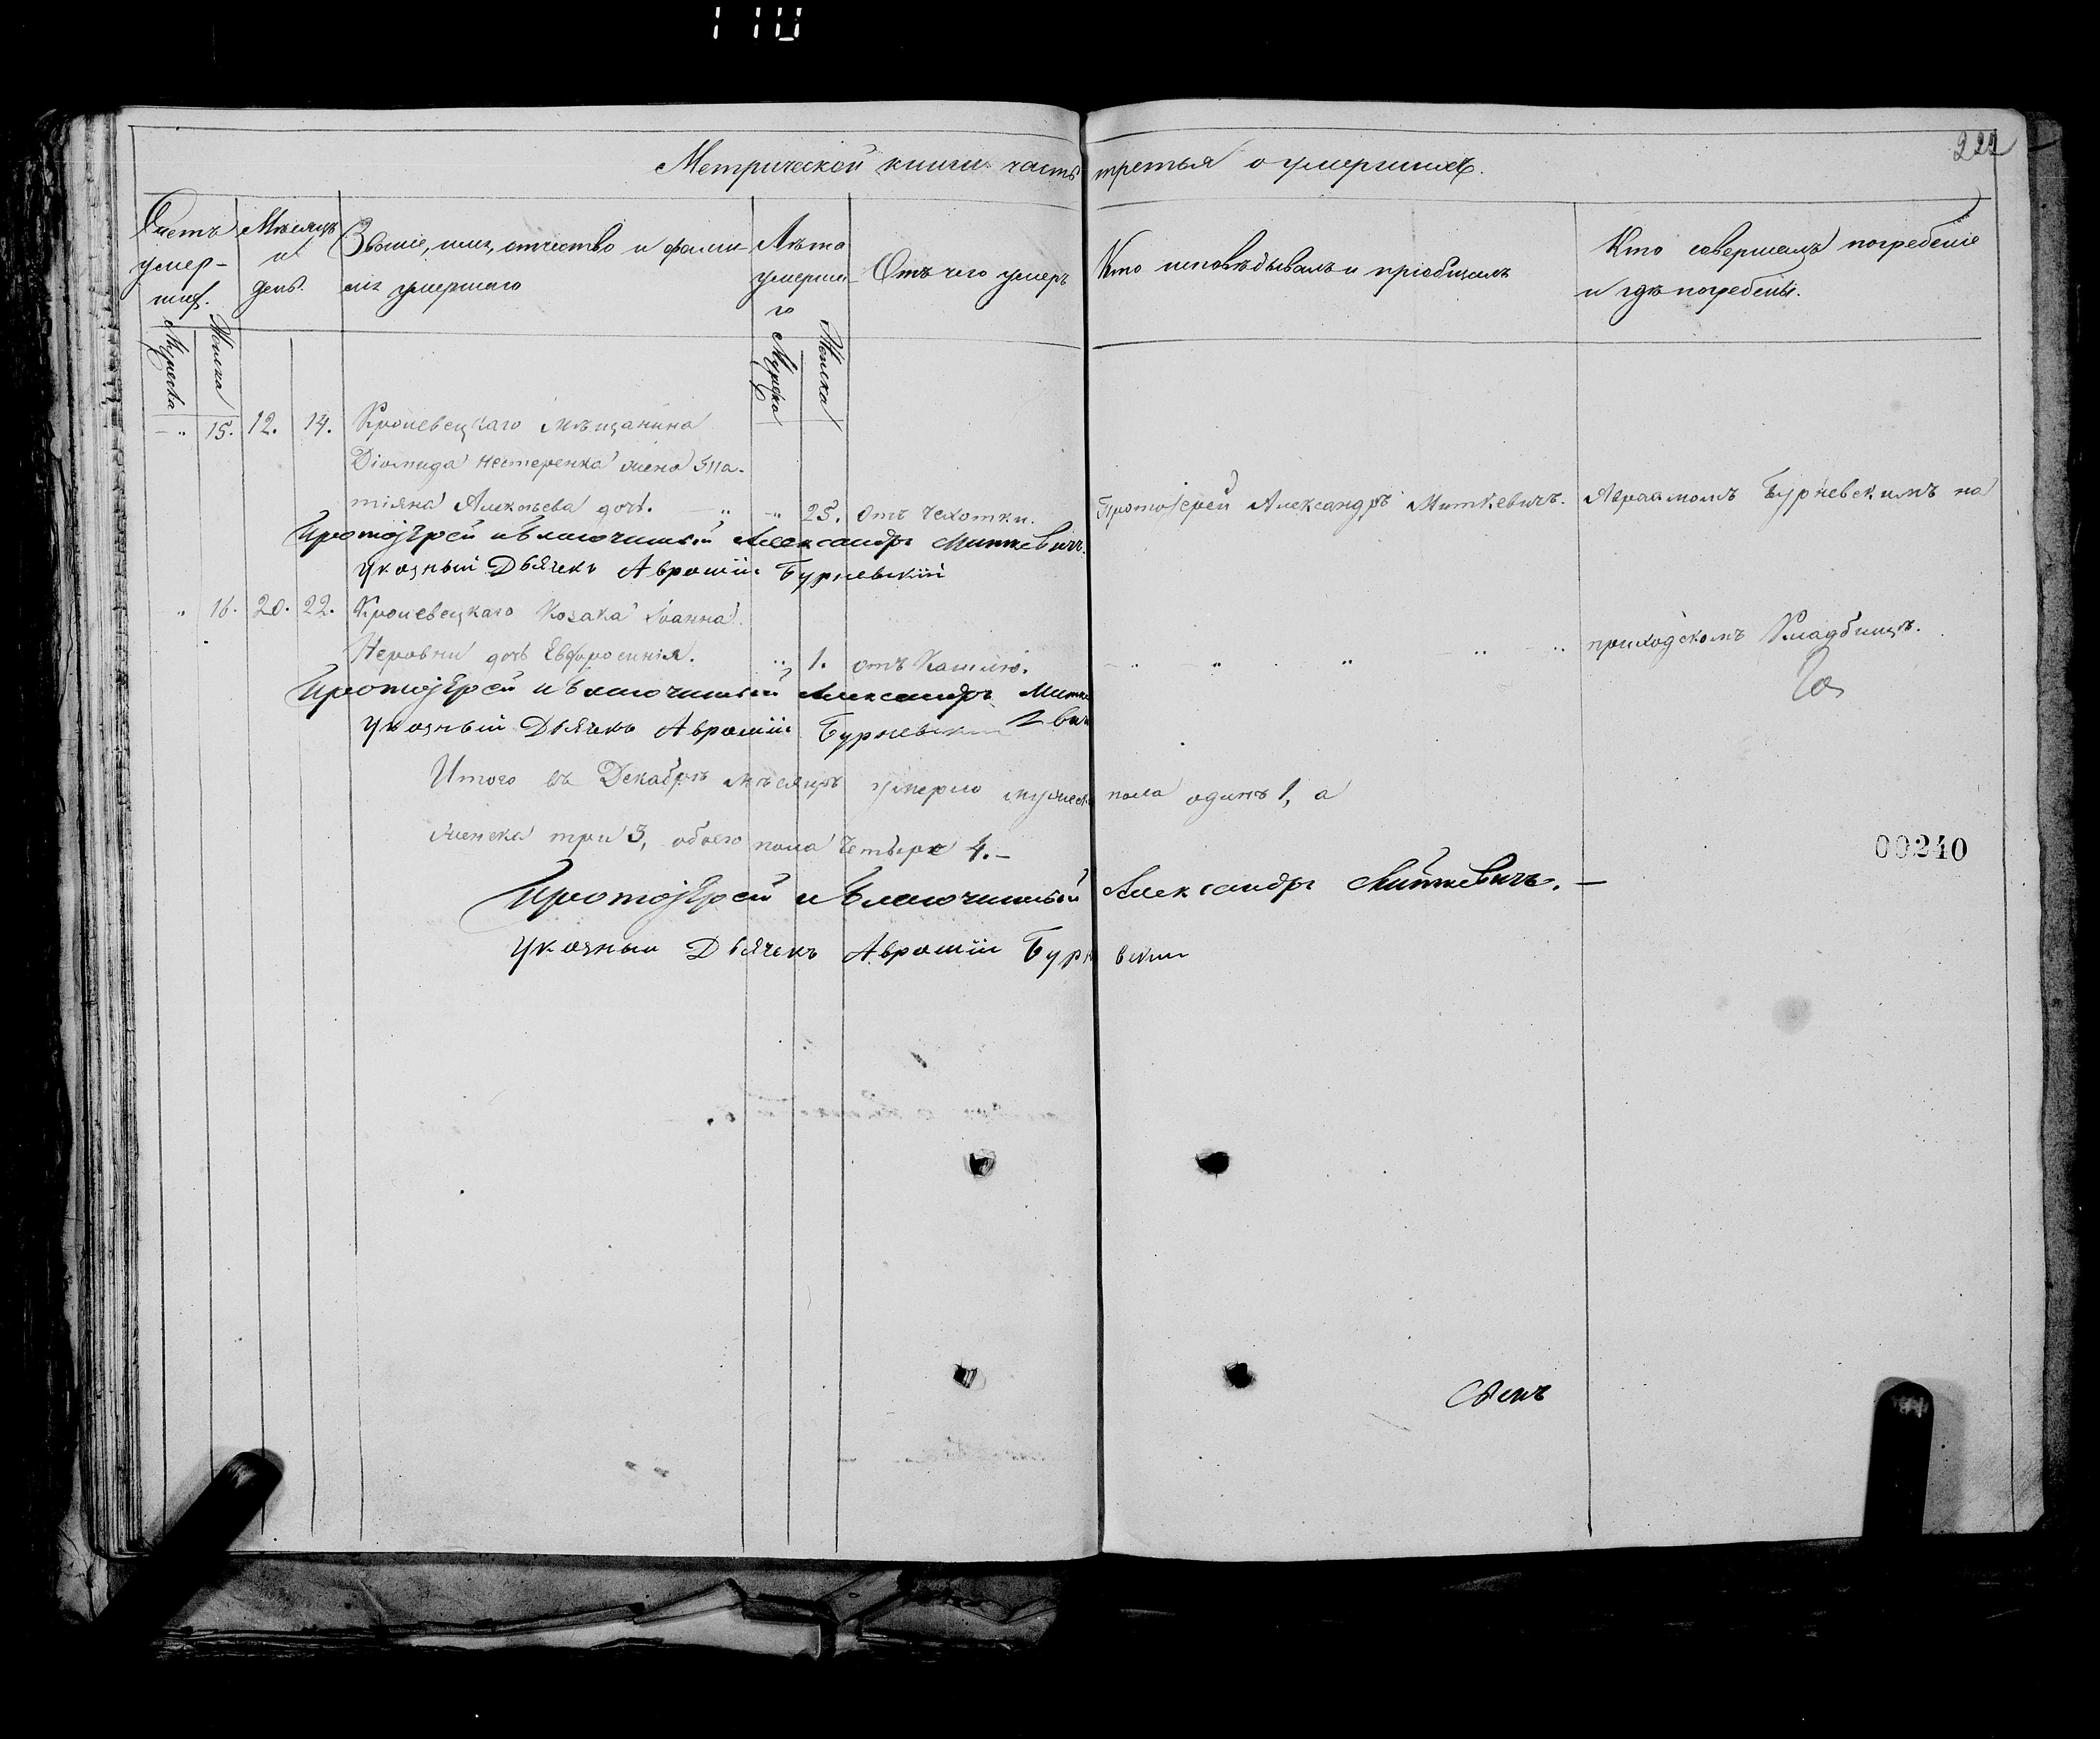 110
222
Метрической книги часть третья о умершихъ.
Счетъ умер-шихъ.
Мужеска
Женска
Мѣсяцъ и день.
Званіе, имя, отчество и фами-
лія умершаго
Лѣта умерша-го
Мужеска
Женска
Отъ чего умеръ
Кто исповѣдывалъ и пріобщалъ
Кто совершалъ погребеніе
и гдѣ погребены.
15. 12. 14. Кролевецкаго мѣщанина
Діомида Нестеренка жена
тіяна Алексѣева дочь. 25. Отъ чахотки. Протоіерей Александръ Миткевичъ. Авраамомъ Бурневскимъ на
Протоіерей и Благочинный Александръ Миткевичъ.
Указный Дьячекъ Аврамій Бурневскій
16. 20. 22. Кролевецкаго Козака Іоанна
Неровни дочь Евфросинія. 1. отъ Кашлю. приходскомъ Кладбищѣ.
Протоіерей и Благочинный Александръ Митке
вичъ
Указный Дьячекъ Аврамій Бурневскій
Итого въ Декабрѣ мѣсяцѣ умерло мужеска пола одинъ 1, а
женска три 3, обоего пола четыре 4.-
00240
Протоіерей и Благочинный Александръ Миткевичъ.-
Указный Дьячекъ Аврамій Бурневскій